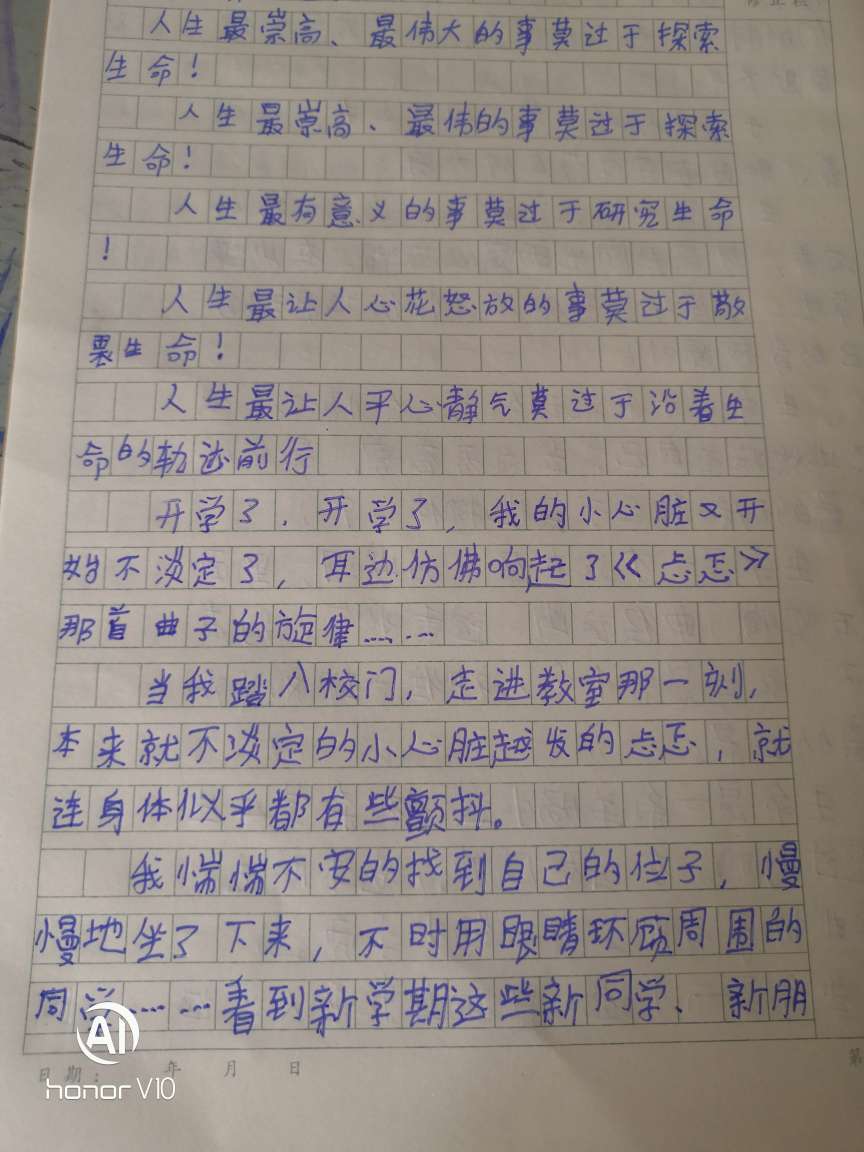 人生最崇高、最伟大的事莫过于探索
生命！
人生最崇高、最伟的事莫过于探索
生命！
人生最有意义的事莫过于研究生命
！
人生最让人心花怒放的事莫过于敬
畏生命！
人生最让人平心静气莫过于沿着生
命的轨迹前行
开学了，开学了，我的小心脏又开
始不淡定了，耳边仿佛响起了《忐忑》
那首曲子的旋律……
当我踏入校门，走进教室那一刻，
本来就不淡定的小心脏越发的忐忑，就
连身体似乎都有些颤抖。
我惴惴不安的找到自己的位子，慢
慢地坐了下来，不时用眼睛环顾周围的
同学……看到新学期这些新同学、新朋
日期： 年 月 日
第
AI
honor V10